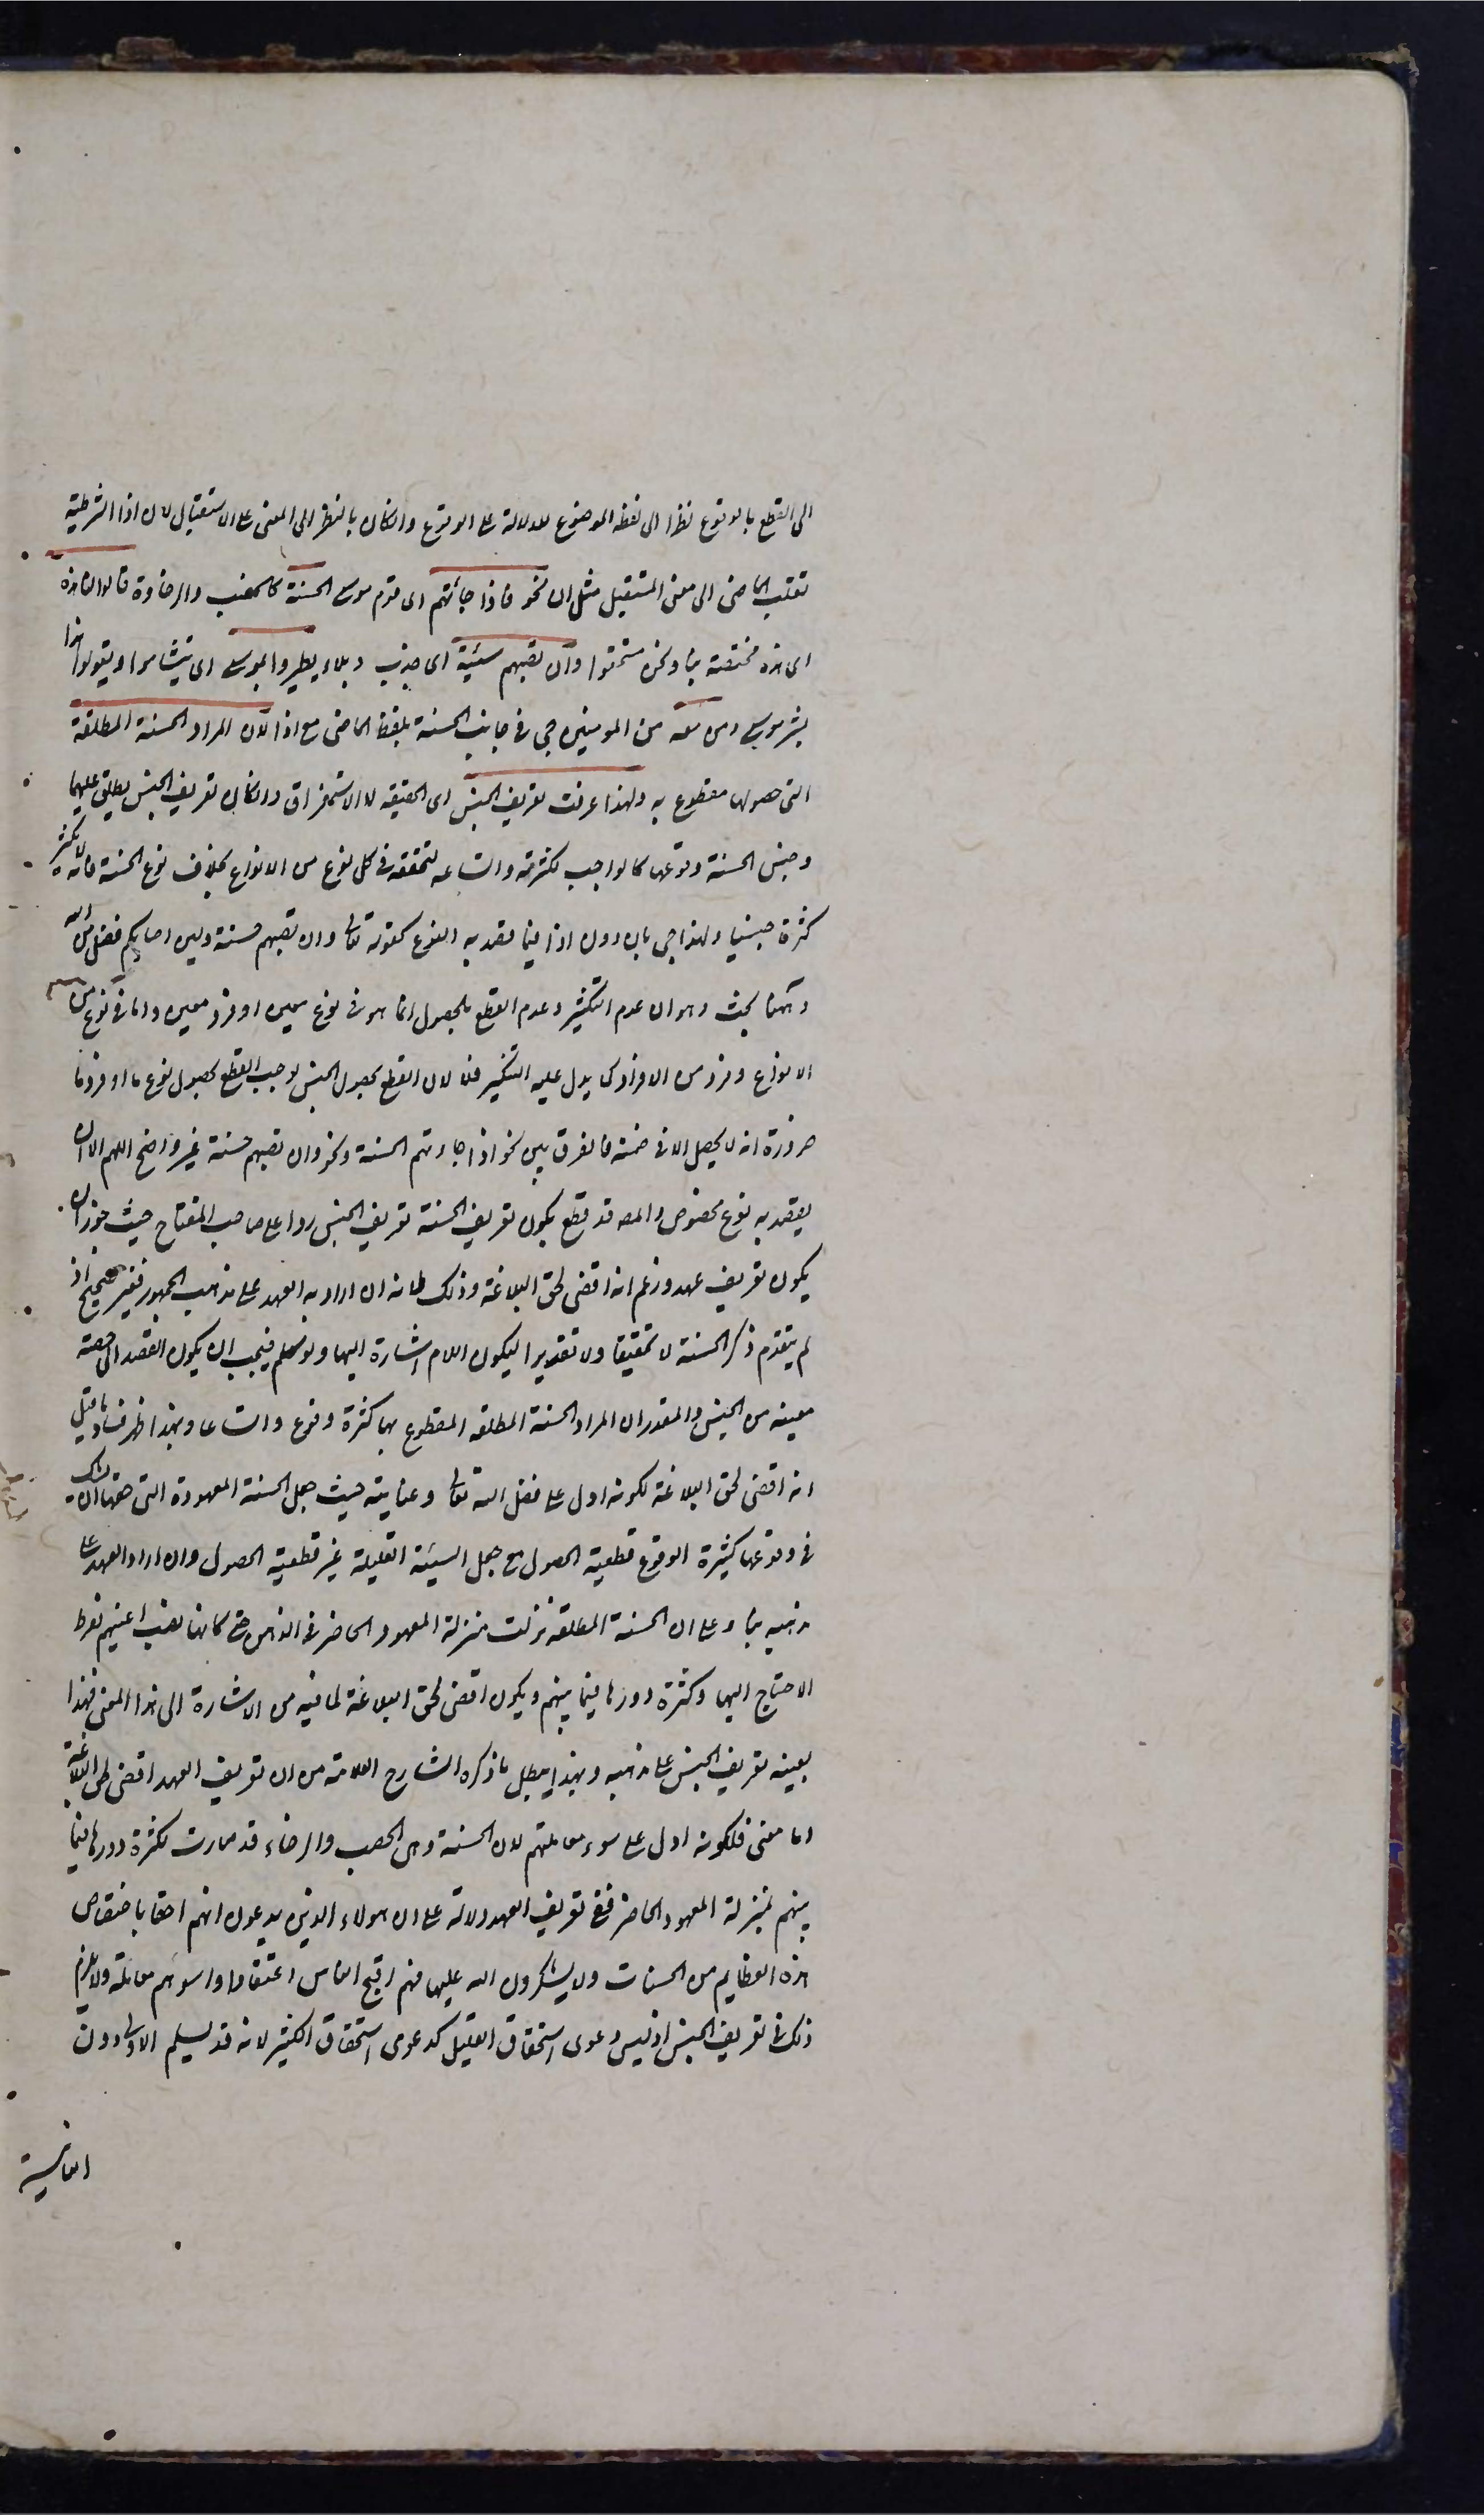 الى القطع بالوقوع نظرا الى لفظه الموضوع للدلالة على الوقوع وانكان بالنظر الى المعنى على الاستقبال لان اذا الشرطية
تقلب الماضى الى معنى المستقبل مثل ان نحو فاذا جائتهم اى قوم موسى الحسنة كالخصب والرخاوة قالوا لنا هذه
اى هذه مختصة بنا ونحن مستحقوا وان تصبهم سيئة اى جذب وبلاء يطيروا بموسى اى يتشاموا ويقولوا هذا
بشر موسى ومن معه من المومنين جى فى جانب الحسنة بلفظ الماضى مع اذا لان المراد الحسنة المطلقة
التى حصولها مقطوع به ولهذا عرفت تعريف الجنس اى الحقيقه لا الاستغراق وانكان تعريف الجنس يطلق عليهما
وجنس الحسنة وقوعها كالواجب لكثرته واتساعه لتحققه فى كل نوع من الانواع بخلاف نوع الحسنة فانه لا يكثر
كثرة جنسيا ولهذا جى بان دون اذا فيما قصد به النوع كقوله تعالى وان تصبهم حسنة ولين اصابكم فضل من الله
وههنا بحث وهو ان عدم التكثير وعدم القطع بالحصول انما هو فى نوع معين او فرد معين واما فى نوع من
الانواع وفرد من الافراد كما يدل عليه التنكير فلا لان القطع بحصول الجنس يوجب القطع بحصول نوع ما او فرد ما
ضرورة انه لا يحصل الا فى ضمنه فالفرق بين نحو اذا جاءتهم الحسنة ونحو وان تصبهم حسنة غير واضح اللهم الا ان
يقصد به نوع مخصوص والمصـ قد قطع بكون تعريف الحسنة تعريف الجنس ردا على صاحب المفتاح حيث جوز ان
يكون تعريف عهد وزعم انه اقضى لحق البلاغة وذلك لانه ان اراد به العهد على مذهب الجمهور فغير صحيح اذ
لم يتقدم ذكر الحسنة لا تحقيقا ولا تقديرا ليكون اللام اشارة اليها ولو سلم فيجب ان يكون القصد الى حصته
معينه من الجنس والمقدر ان المراد الحسنة المطلقه المقطوع بها كثرة وقوع واتساعا وبهذا ظهر فساد ما قيل
انه اقضى لحق البلاغة لكونه ادل على فضل الله تعالى وعنايته حيث جعل الحسنة المعهودة التى حقها ان يشك
فى وقوعها كثيرة الوقوع قطعية الحصول مع جعل السيئة القليلة غير قطعية الحصول وان اراد العهد على
مذهبه بناء على ان الحسنة المطلقه نزلت منزلة المعهود الحاضر فى الذهن حتى كانها نصب اعينهم لفرط
الاحتياج اليها وكثرة دورها فيما بينهم ويكون اقضى لحق البلاغة لما فيه من الاشارة الى هذا المعنى فهذا
بعينه تعريف الجنس على مذهبه وبهذا يبطل ما ذكره الشارح العلامة من ان تعريف العهد اقضى لحق البلاغة
اما معنى فلكونه ادل على سوء معاملتهم لان الحسنة وهى الخصب والرخاء قد صارت لكثرة دورها فيما
بينهم بمنزلة المعهود الحاضر ففى تعريف العهد دلالة على ان هولاء الذين يدعون انهم احقا باختصاص
هذه العظايم من الحسنات ولا يشكرون الله عليها فهم اقبح الناس اعتقادا واسوءهم معاملة ولا يلزم
ذلك فى تعريف الجنس اذ ليس دعوى استحقاق القليل كدعوى استحقاق الكثير لانه قد يسلم الاولى دون
الثانية